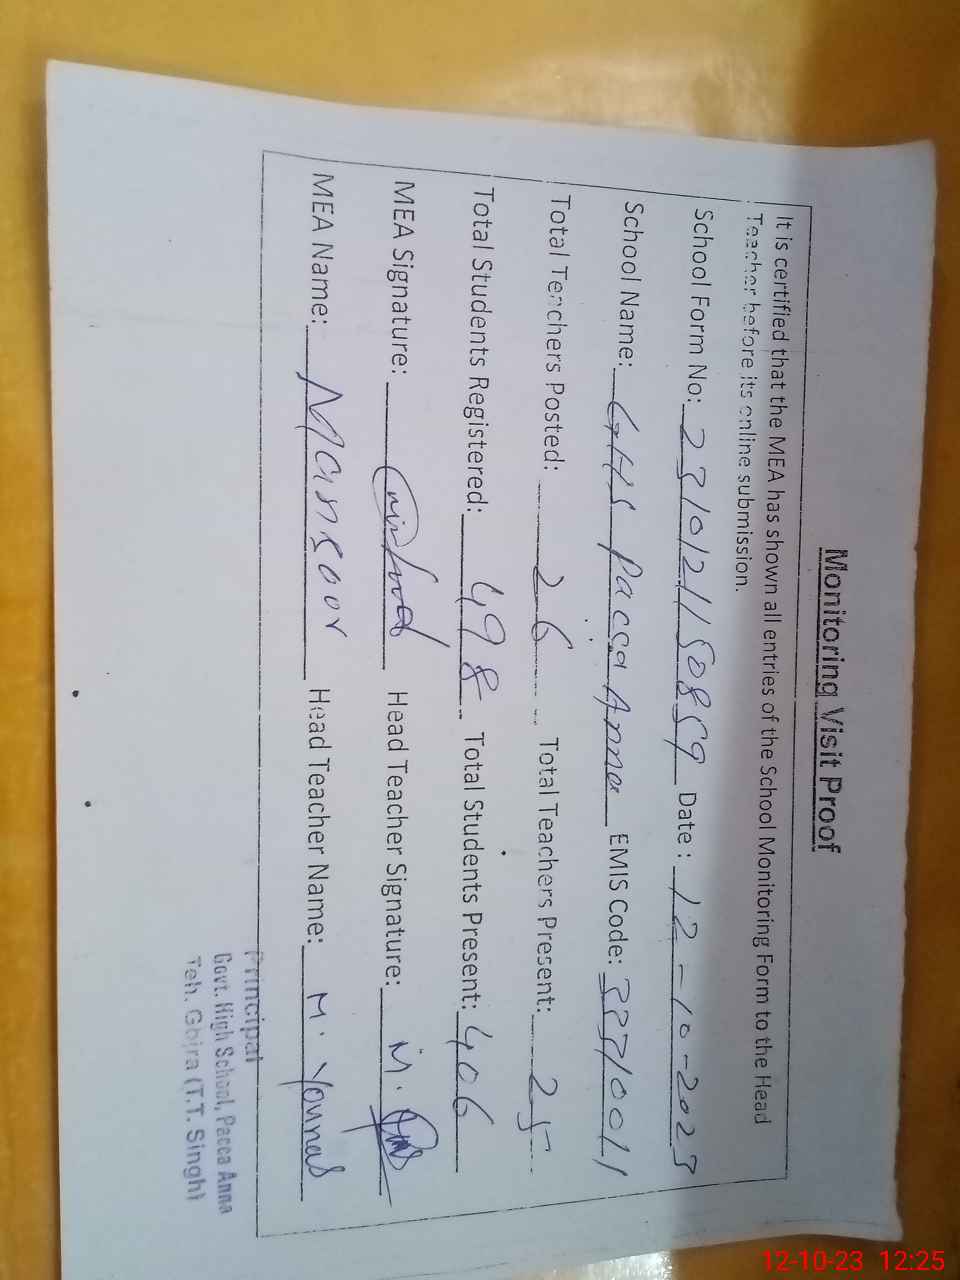 Monitoring Visit Proof
It is certified that the MEA has shown all entries of the School Monitoring Form to the Head
Teacher before its online submission.
School Form No: 2310121150859 Date : 12-10-2023
School Name: GHS Pacca Anna EMIS Code: 33310011
Total Teachers Posted: 26 Total Teachers Present: 25
Total Students Registered: 498 Total Students Present: 406
MEA Signature: Head Teacher Signature: M.
MEA Name: Mansoor Head Teacher Name: M. Younas
Principal
Govt. High School, Pacca Anna
Teh. Gojra (T.T. Singh)
12-10-23 12:25